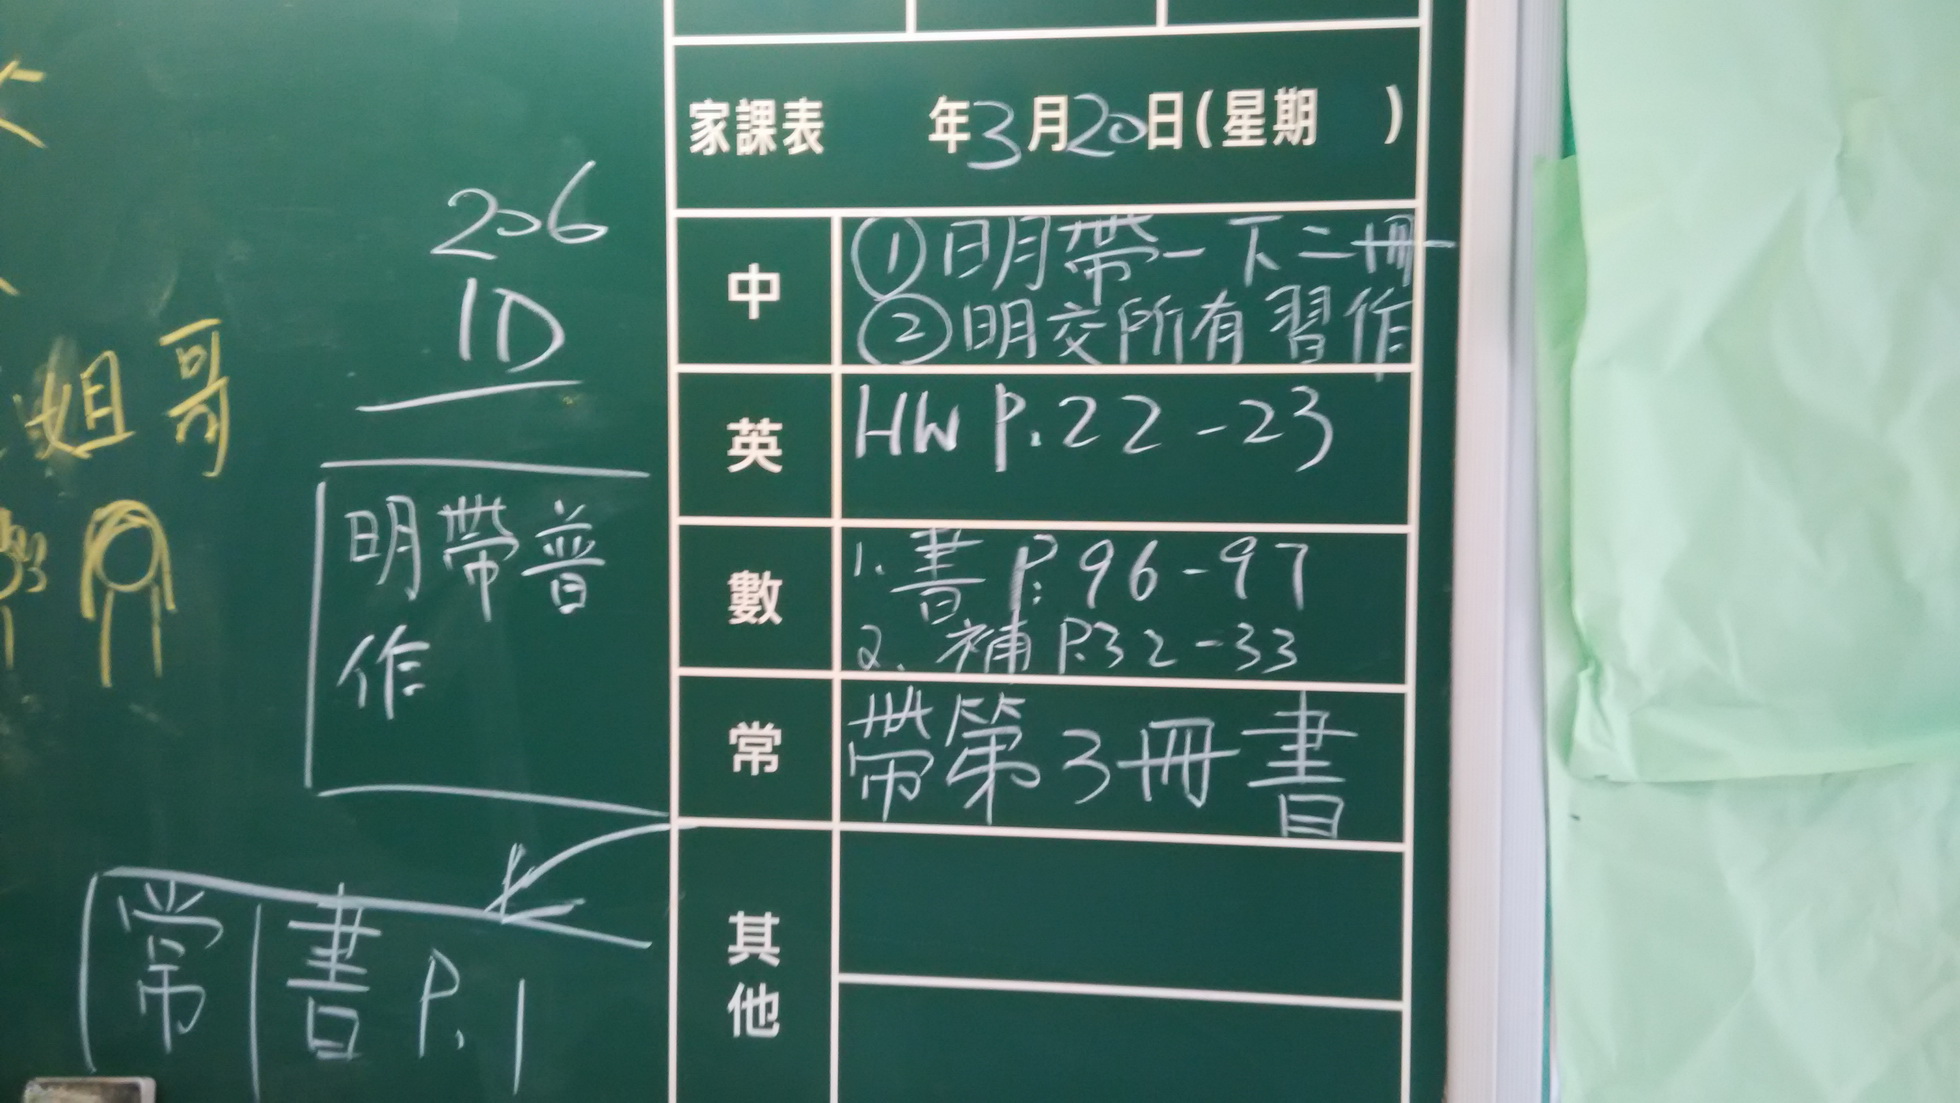 家課表 年3月20日(星期 )
中
①明帶一下二冊
②明交所有習作
英
HW P.22-23
數
1. 書 P. 96-97
2. 補 P.32-33
常
帶第3冊書
其他
206
1D
明帶普
作
常 書 P.1
姐哥